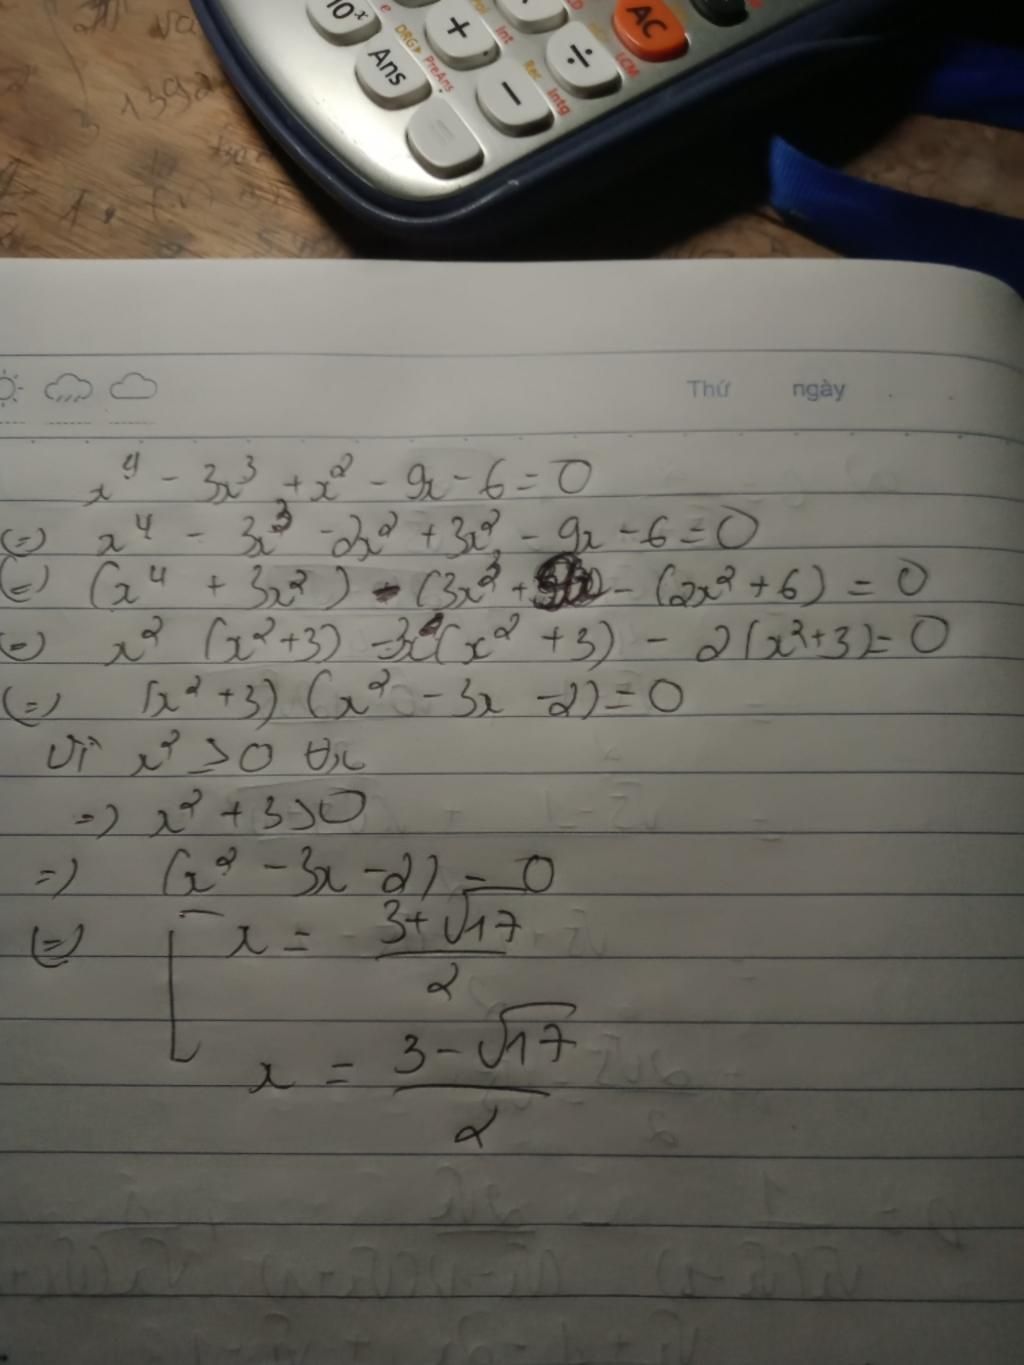 10ˣ
e
+
Int
÷
AC
LCM
DRG▸
Ans
PreAns
Rec
−
Intg
=
Thứ ngày
x⁴ - 3x³ + x² - 9x - 6 = 0
(=) x⁴ - 3x³ - 2x² + 3x² - 9x - 6 = 0
(=) (x⁴ + 3x²) - (3x³ + - (2x² + 6) = 0
(=) x² (x² + 3) - 3x (x² + 3) - 2(x² + 3) = 0
(=) (x² + 3) (x² - 3x - 2) = 0
Vì x² ≥ 0 ∀x
=) x² + 3 > 0
=) (x² - 3x - 2) = 0
(=) [ x = (3 + √17)/2
x = (3 - √17)/2